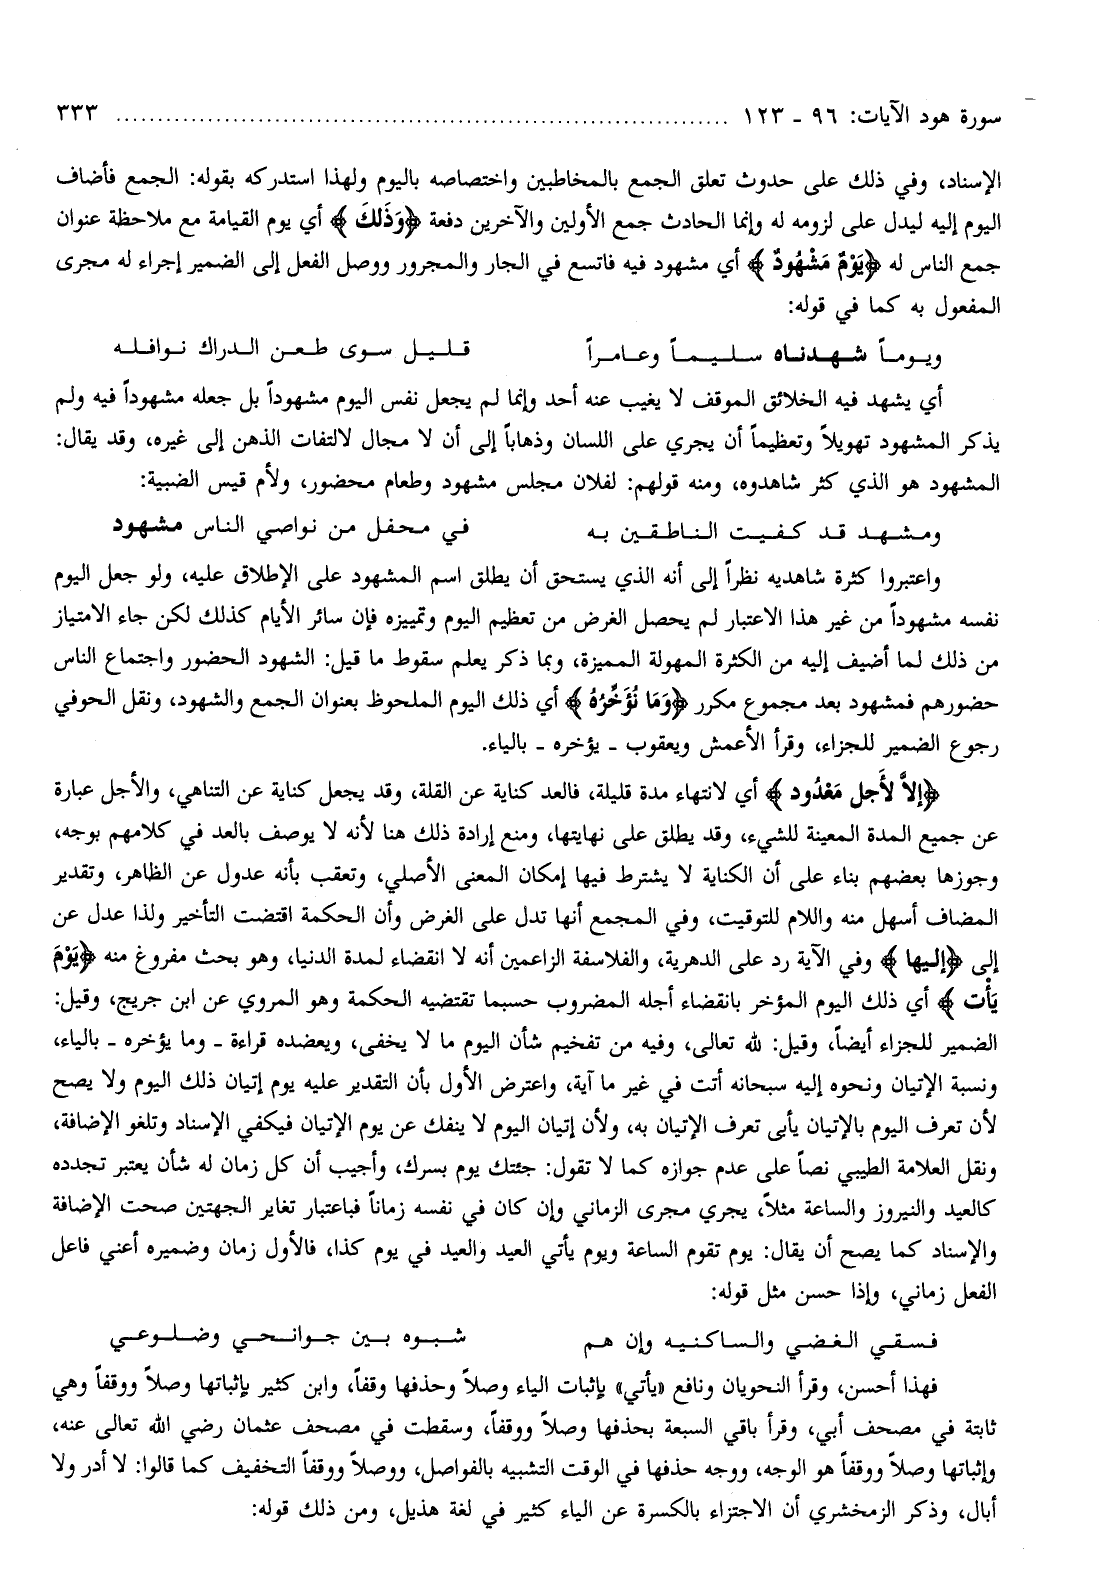 سورة هود الآيات: ٩٦ ـ ١٢٣ ........................................................................ ٣٣٣
الإسناد، وفي ذلك على حدوث تعلق الجمع بالمخاطبين واختصاصه باليوم ولهذا استدركه بقوله: الجمع فأضاف
اليوم إليه ليدل على لزومه له وإنما الحادث جمع الأولين والآخرين دفعة ﴿وَذَلكَ ﴾ أي يوم القيامة مع ملاحظة عنوان
جمع الناس له ﴿يَوْمٌ مَشْهُودٌ ﴾ أي مشهود فيه فاتسع في الجار والمجرور ووصل الفعل إلى الضمير إجراء له مجرى
المفعول به كما في قوله:
ويوماً شهدناه سليماً وعامراً قليل سوى طعن الدراك نوافله
أي يشهد فيه الخلائق الموقف لا يغيب عنه أحد وإنما لم يجعل نفس اليوم مشهوداً بل جعله مشهوداً فيه ولم
يذكر المشهود تهويلاً وتعظيماً أن يجري على اللسان وذهاباً إلى أن لا مجال لالتفات الذهن إلى غيره، وقد يقال:
المشهود هو الذي كثر شاهدوه، ومنه قولهم: لفلان مجلس مشهود وطعام محضور، ولأم قيس الضبية:
ومشهد قد كفيت الناطقين به في محفل من نواصي الناس مشهود
واعتبروا كثرة شاهديه نظراً إلى أنه الذي يستحق أن يطلق اسم المشهود على الإطلاق عليه، ولو جعل اليوم
نفسه مشهوداً من غير هذا الاعتبار لم يحصل الغرض من تعظيم اليوم وتمييزه فإن سائر الأيام كذلك لكن جاء الامتياز
من ذلك لما أضيف إليه من الكثرة المهولة المميزة، وبما ذكر يعلم سقوط ما قيل: الشهود الحضور واجتماع الناس
حضورهم فمشهود بعد مجموع مكرر ﴿وَمَا نُؤَخِّرُهُ ﴾ أي ذلك اليوم الملحوظ بعنوان الجمع والشهود، ونقل الحوفي
رجوع الضمير للجزاء، وقرأ الأعمش ويعقوب ـ يؤخره ـ بالياء.
﴿إلاَّ لأَجل مَعْدُود ﴾ أي لانتهاء مدة قليلة، فالعد كناية عن القلة، وقد يجعل كناية عن التناهي، والأجل عبارة
عن جميع المدة المعينة للشيء، وقد يطلق على نهايتها، ومنع إرادة ذلك هنا لأنه لا يوصف بالعد في كلامهم بوجه،
وجوزها بعضهم بناء على أن الكناية لا يشترط فيها إمكان المعنى الأصلي، وتعقب بأنه عدول عن الظاهر، وتقدير
المضاف أسهل منه واللام للتوقيت، وفي المجمع أنها تدل على الغرض وأن الحكمة اقتضت التأخير ولذا عدل عن
إلى ﴿إليها ﴾ وفي الآية رد على الدهرية، والفلاسفة الزاعمين أنه لا انقضاء لمدة الدنيا، وهو بحث مفروغ منه ﴿يَوْمَ
يَأْت ﴾ أي ذلك اليوم المؤخر بانقضاء أجله المضروب حسبما تقتضيه الحكمة وهو المروي عن ابن جريج، وقيل:
الضمير للجزاء أيضاً، وقيل: لله تعالى، وفيه من تفخيم شأن اليوم ما لا يخفى، ويعضده قراءة ـ وما يؤخره ـ بالياء،
ونسبة الإتيان ونحوه إليه سبحانه أتت في غير ما آية، واعترض الأول بأن التقدير عليه يوم إتيان ذلك اليوم ولا يصح
لأن تعرف اليوم بالإتيان يأبى تعرف الإتيان به، ولأن إتيان اليوم لا ينفك عن يوم الإتيان فيكفي الإسناد وتلغو الإضافة،
ونقل العلامة الطيبي نصاً على عدم جوازه كما لا تقول: جئتك يوم بسرك، وأجيب أن كل زمان له شأن يعتبر تجدده
كالعيد والنيروز والساعة مثلاً، يجري مجرى الزماني وإن كان في نفسه زماناً فباعتبار تغاير الجهتين صحت الإضافة
والإسناد كما يصح أن يقال: يوم تقوم الساعة ويوم يأتي العيد والعيد في يوم كذا، فالأول زمان وضميره أعني فاعل
الفعل زماني، وإذا حسن مثل قوله:
فسقي الغضي والساكنيه وإن هم شبوه بين جوانحي وضلوعي
فهذا أحسن، وقرأ النحويان ونافع «يأتي» بإثبات الياء وصلاً وحذفها وقفاً، وابن كثير بإثباتها وصلاً ووقفاً وهي
ثابتة في مصحف أبي، وقرأ باقي السبعة بحذفها وصلاً ووقفاً، وسقطت في مصحف عثمان رضي الله تعالى عنه،
وإثباتها وصلاً ووقفاً هو الوجه، ووجه حذفها في الوقت التشبيه بالفواصل، ووصلاً ووقفاً التخفيف كما قالوا: لا أدر ولا
أبال، وذكر الزمخشري أن الاجتزاء بالكسرة عن الياء كثير في لغة هذيل، ومن ذلك قوله: